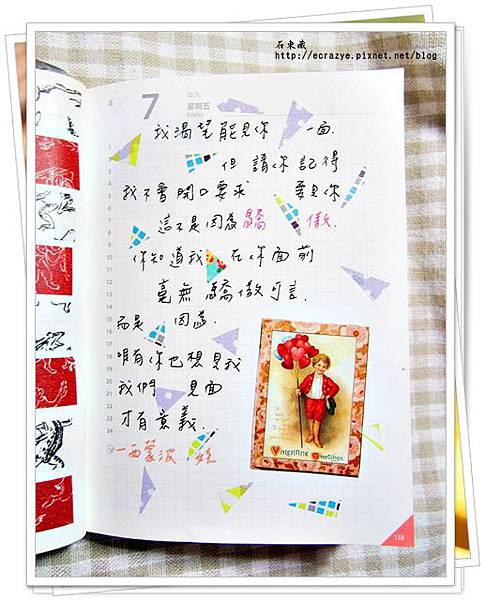 http://ecrazye.pixnet.net/blog
6 7 廿九
星期五
Friday
我渴望能見你 一面.
但 請你記得
我不會開口要求 要見你
這不是因為驕 傲.
你知道我 在你面前
毫無 驕傲可言.
而是 因為.
唯有你也想見我
我們 見面
才有意義.
一西蒙波.娃
Valentine Greetings
158